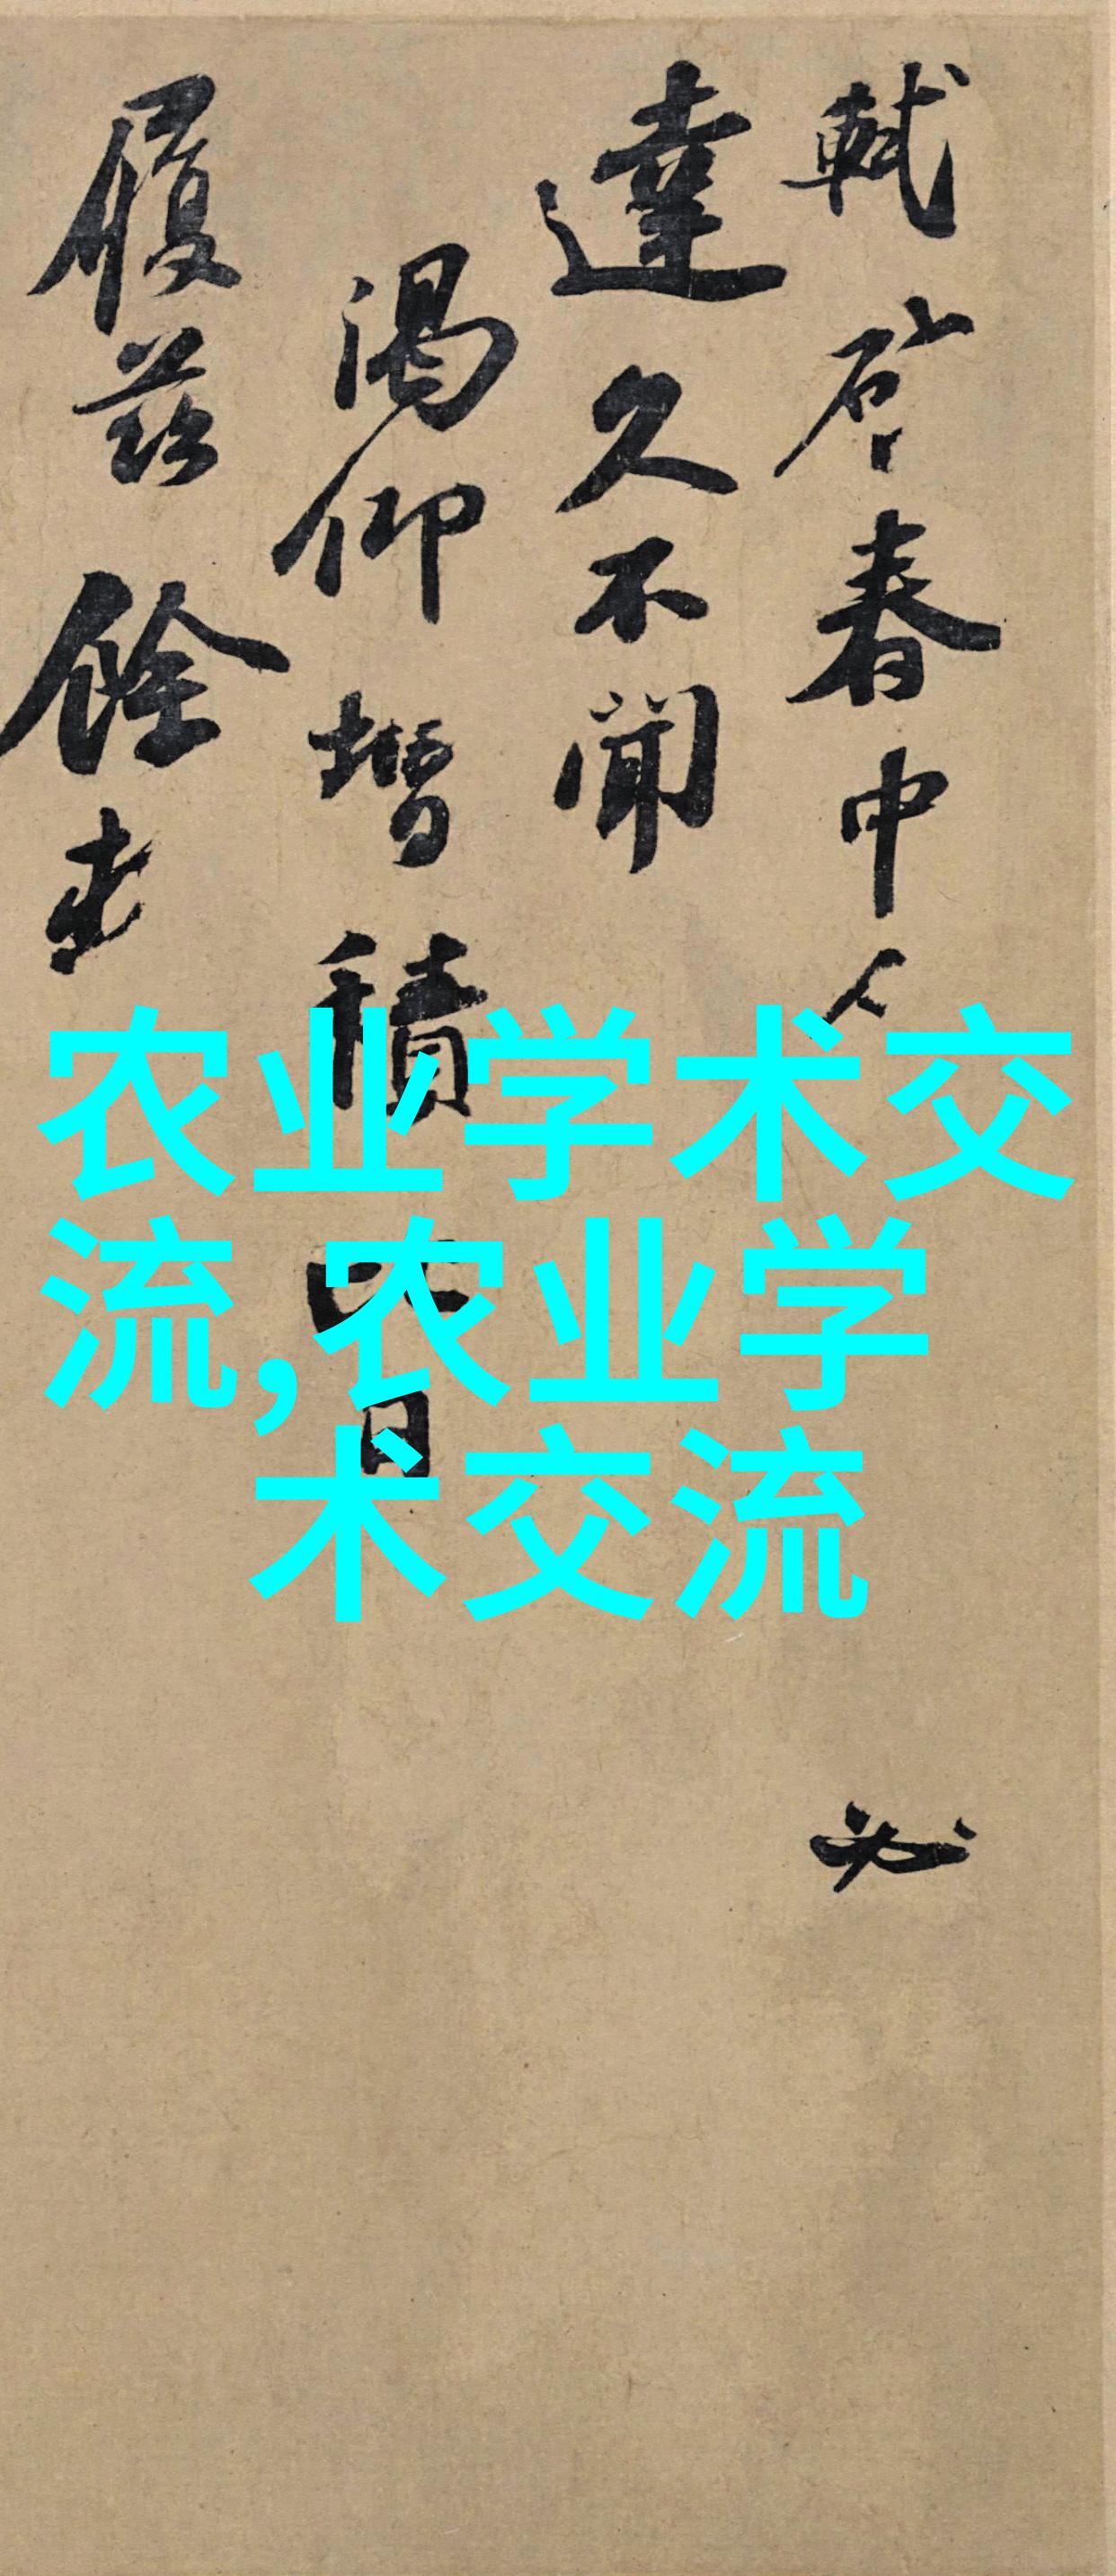 軾啓春中人必
達久不聞
渴仰增積日
履茲餘
农业学术交
流,农业学
术交流